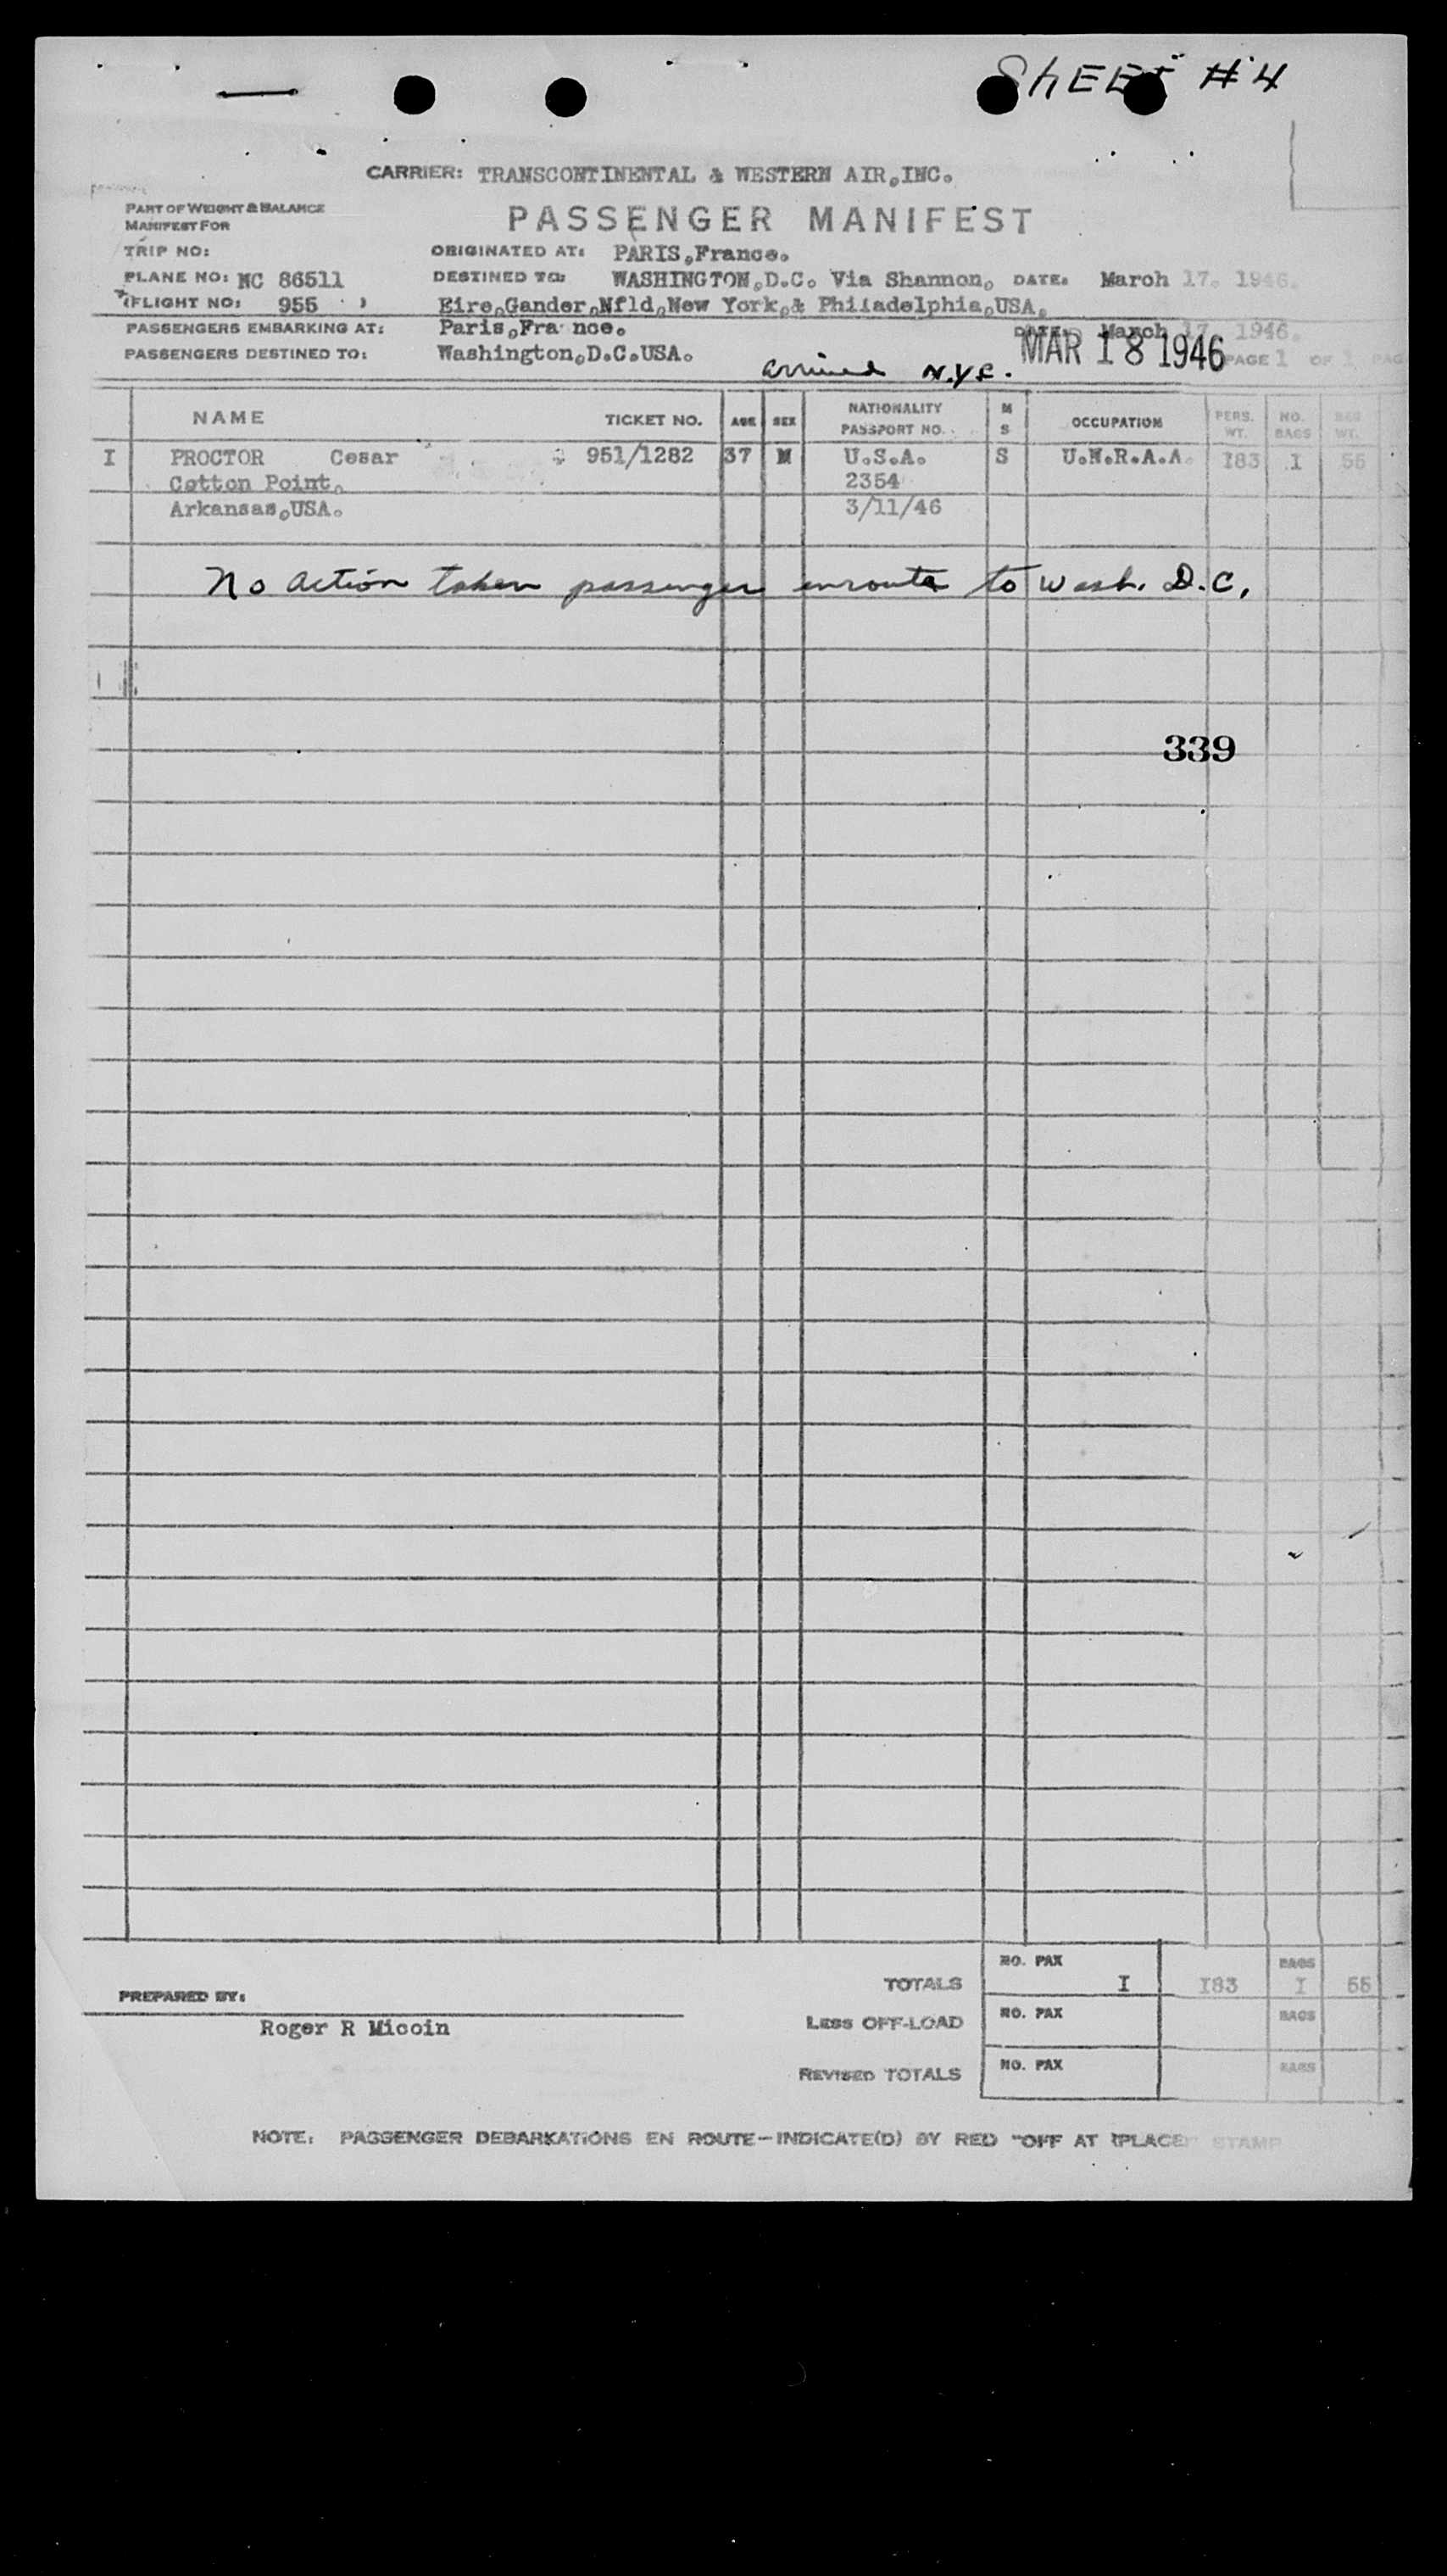 SHEET #4
CARRIER: TRANSCONTINENTAL & WESTERN AIR,INC.
PART OF WEIGHT & BALANCE
MANIFEST FOR
PASSENGER MANIFEST
TRIP NO:
ORIGINATED AT: PARIS,France.
PLANE NO: NC 86511
DESTINED TO: WASHINGTON,D.C. Via Shannon, DATE: March 17. 1946.
(FLIGHT NO: 955 )
Eire,Gander,Nfld,New York,& Philadelphia,USA.
PASSENGERS EMBARKING AT: Paris,Fra nce. DATE: March 17. 1946.
PASSENGERS DESTINED TO: Washington,D.C.USA. MAR 18 1946 PAGE 1 OF 1 PAG
arrived N.Y.C.
NAME TICKET NO. AGE SEX NATIONALITY PASSPORT NO. M S OCCUPATION PERS. WT. NO. BAGS WT.
I PROCTOR Cesar 951/1282 37 M U.S.A. S U.N.R.A.A. I83 I 55
Cotton Point, 2354
Arkansas,USA. 3/11/46
No action taken passenger enroute to Wash. D.C.
339
TOTALS NO. PAX I I83 BAGS I 55
PREPARED BY:
Roger R Micoin
LESS OFF-LOAD NO. PAX BAGS
REVISED TOTALS NO. PAX BAGS
NOTE: PASSENGER DEBARKATIONS EN ROUTE—INDICATE(D) BY RED "OFF AT (PLACE)" STAMP